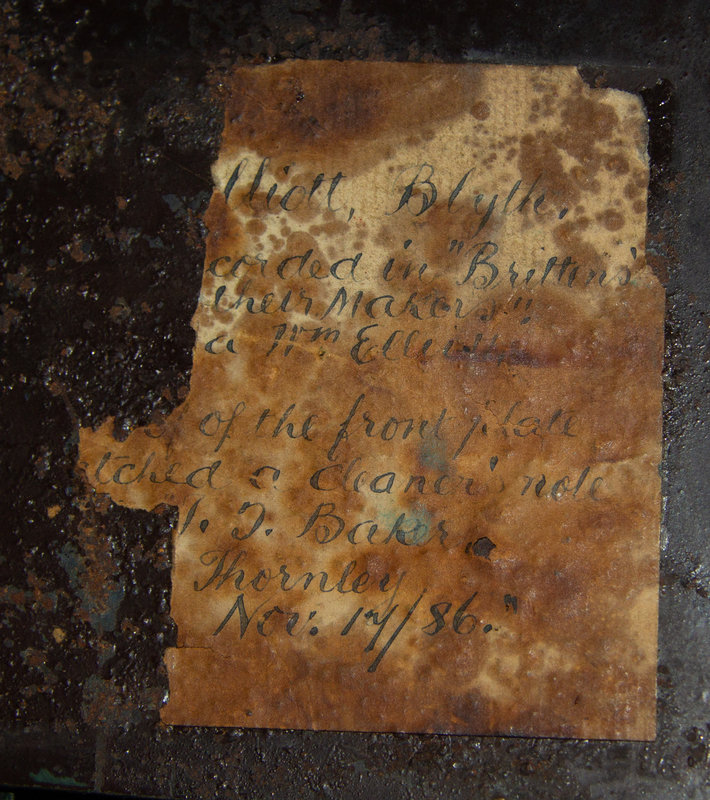 lliott, Blyth.
corded in "Britten's
their Makers",
a Wm Elliott
of the front plate
tched a cleaner's note
. T. Baker
Thornley
Nov. 17/86."